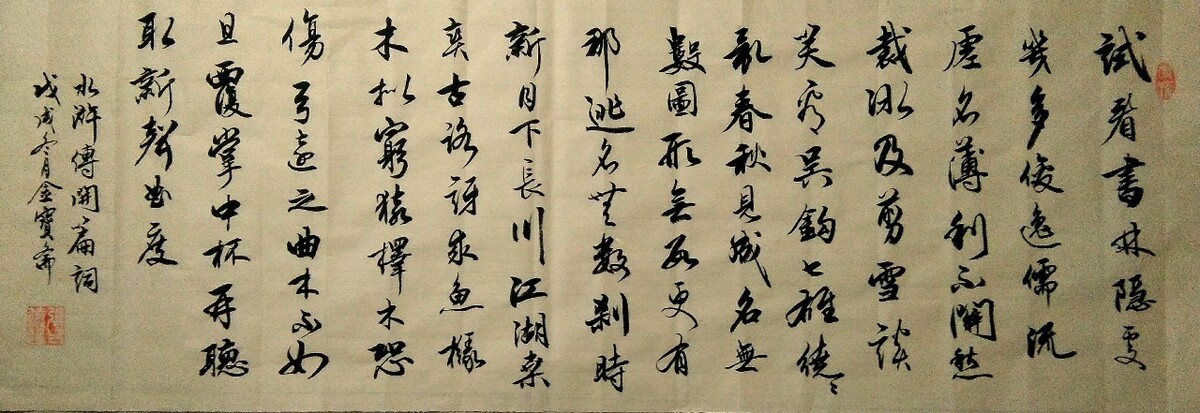 試看書林隱處
幾多俊逸儒流
虛名薄利不關愁
裁冰及剪雪談
笑看吳鈎七雄繞〻
亂春秋見成名無
數圖形無數更有
那逃名無數剎時
新月下長川江湖桑
奕古路訝求魚椽
木拟窮猿擇木恐
傷弓遠之曲木不如
且覆掌中杯再聽
取新聲曲度
水滸傳開篇詞
戊戌冬月金寶齋